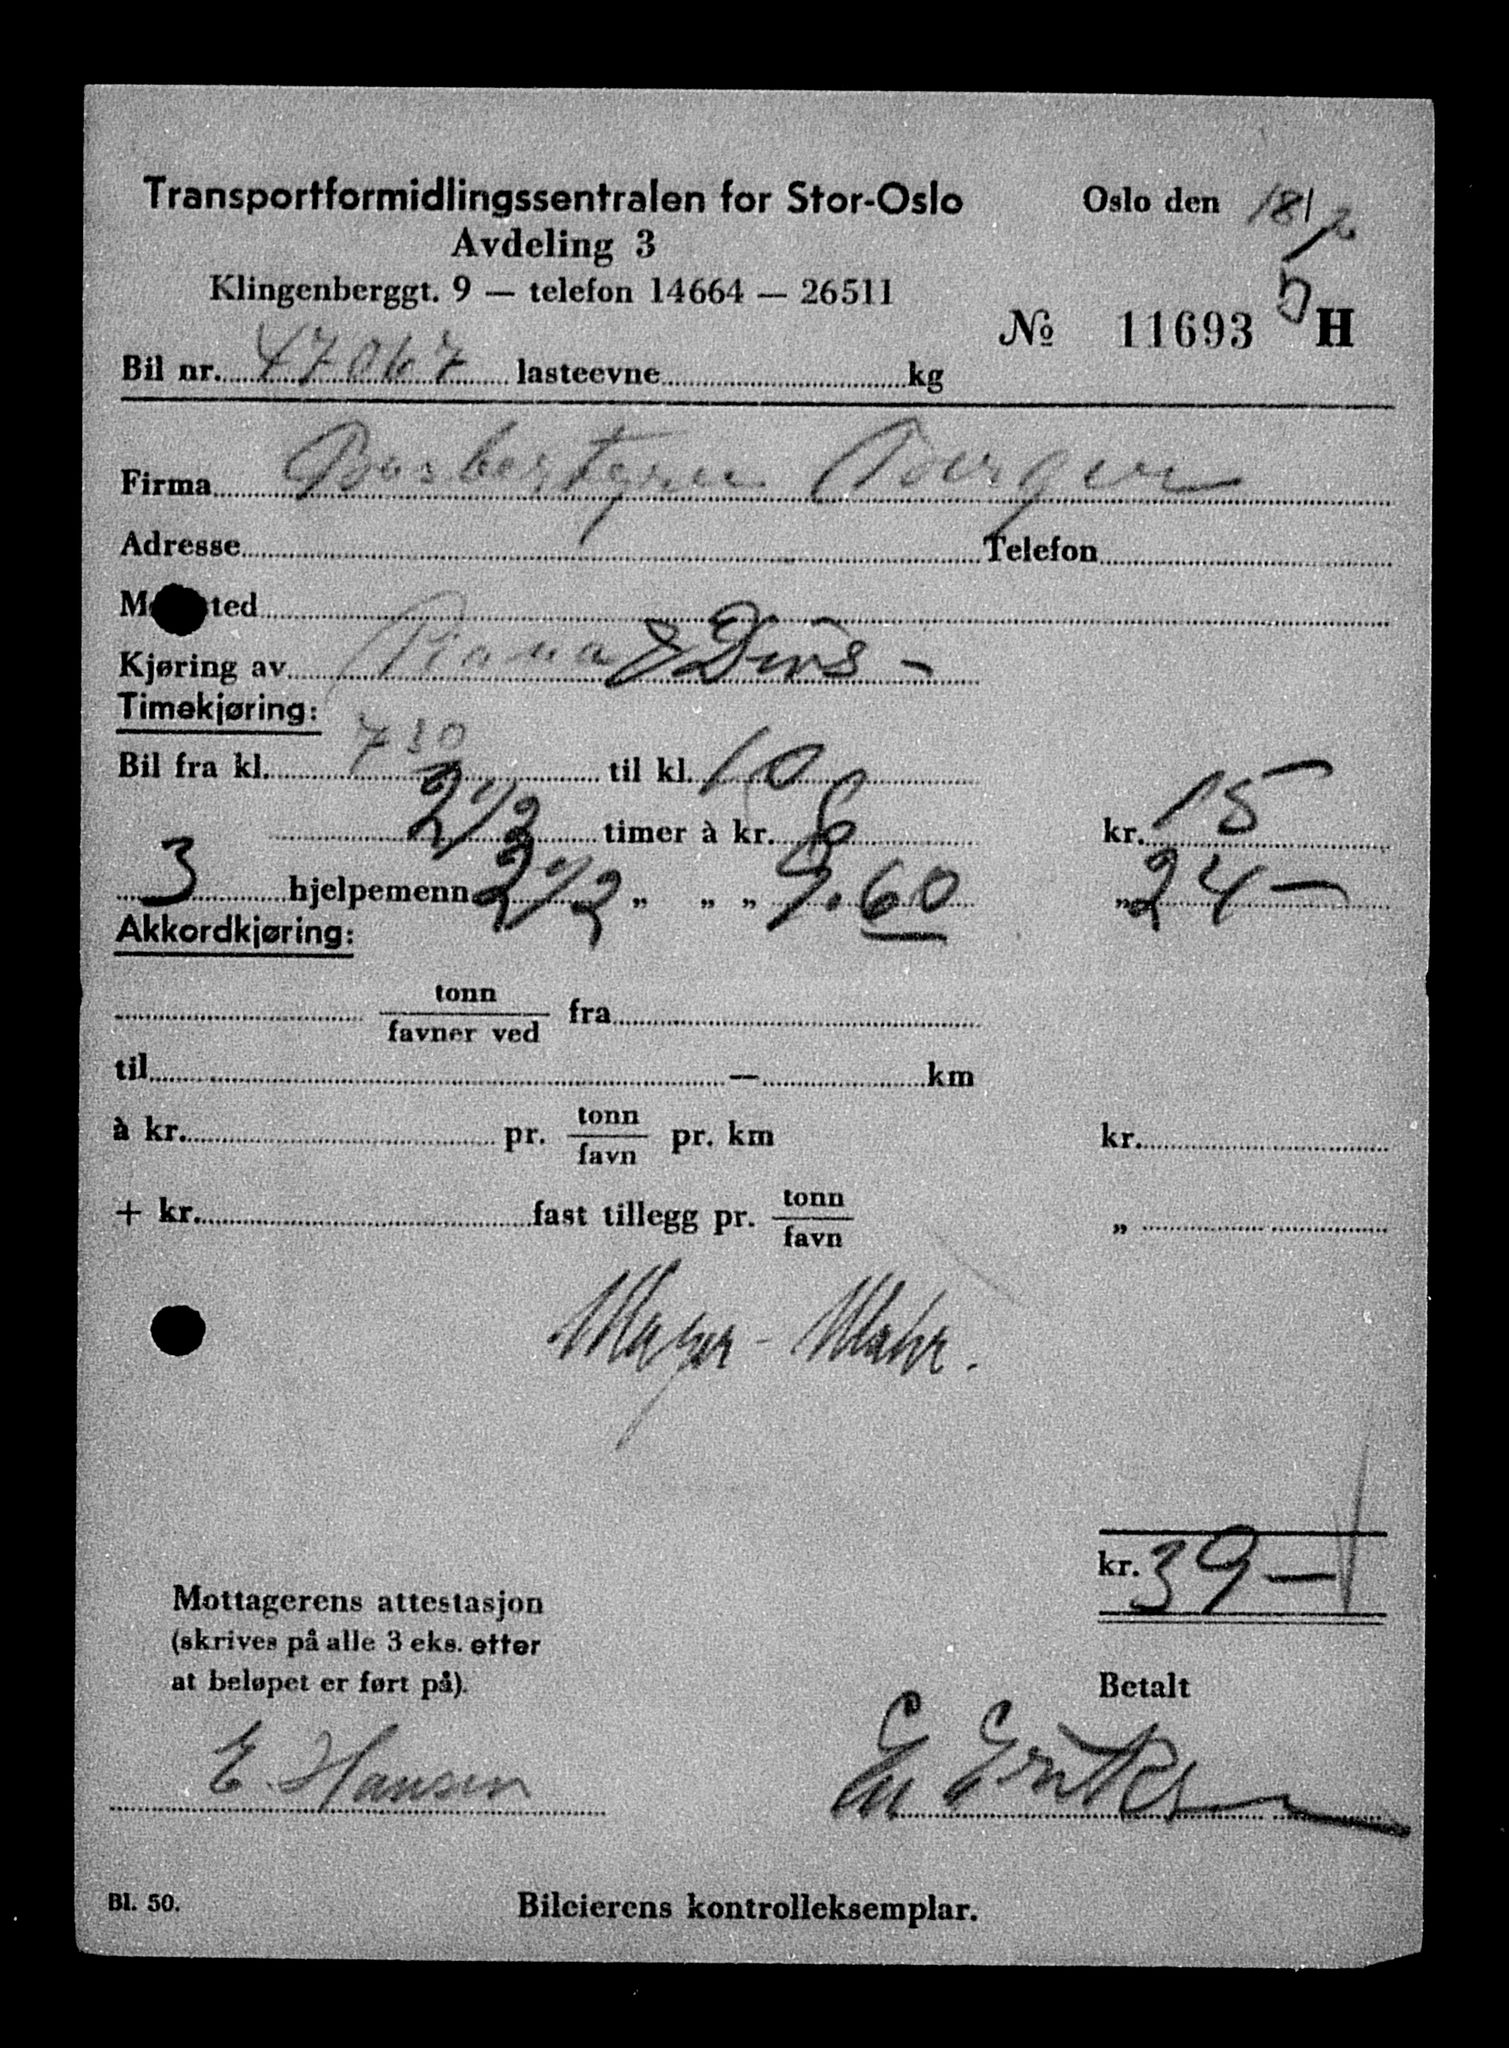 Transportformidlingssentralen for Stor-Oslo
Oslo den 18/
Avdeling 3
Klingenberggt. 9 — telefon 14664 — 26511
№ 11693 H
Bil nr. 47067 lasteevne kg
Firma
Adresse Telefon
M ted
Kjøring av Piano & Divs –
Timekjøring:
Bil fra kl. 7 30 til kl. 10
2 1/2 timer à kr. 6 kr. 15 —
3 hjelpemenn 2 1/2 „ „ „ 9.60 „ 24 —
Akkordkjøring:
tonn
favner ved fra
til — km
à kr. pr. tonn
favn pr. km kr.
+ kr. fast tillegg pr. tonn
favn „
Mayer - Mahr.
kr. 39 —
Mottagerens attestasjon
(skrives på alle 3 eks. etter
at beløpet er ført på).
Betalt
E. Hansen
Bl. 50.
Bileierens kontrolleksemplar.